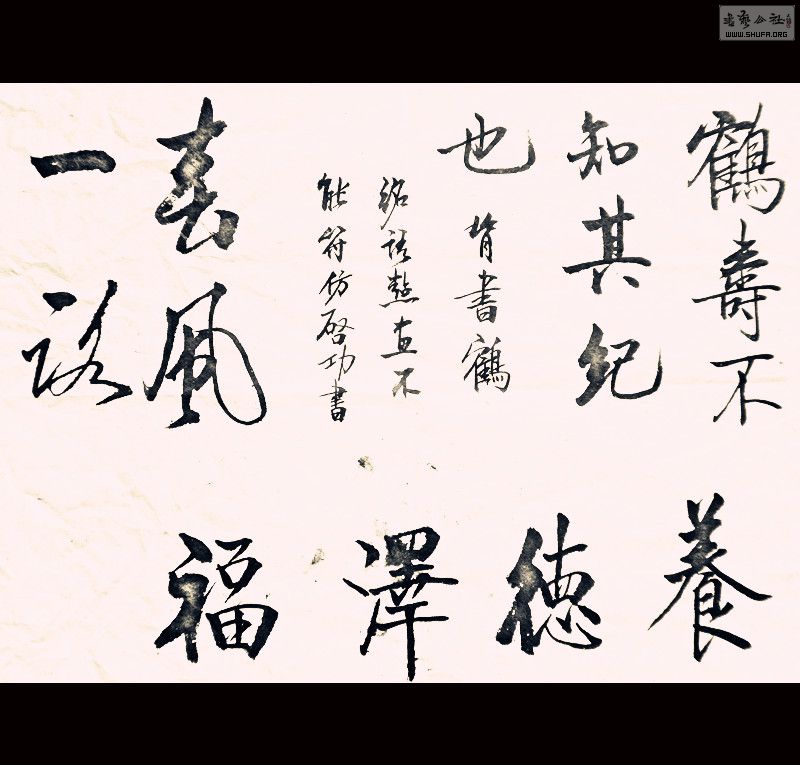 鶴壽不
知其紀
也 背書鶴
銘語熟直不
能符仿啓功書
春風
一路
養德澤福
書藝公社
WWW.SHUFA.ORG